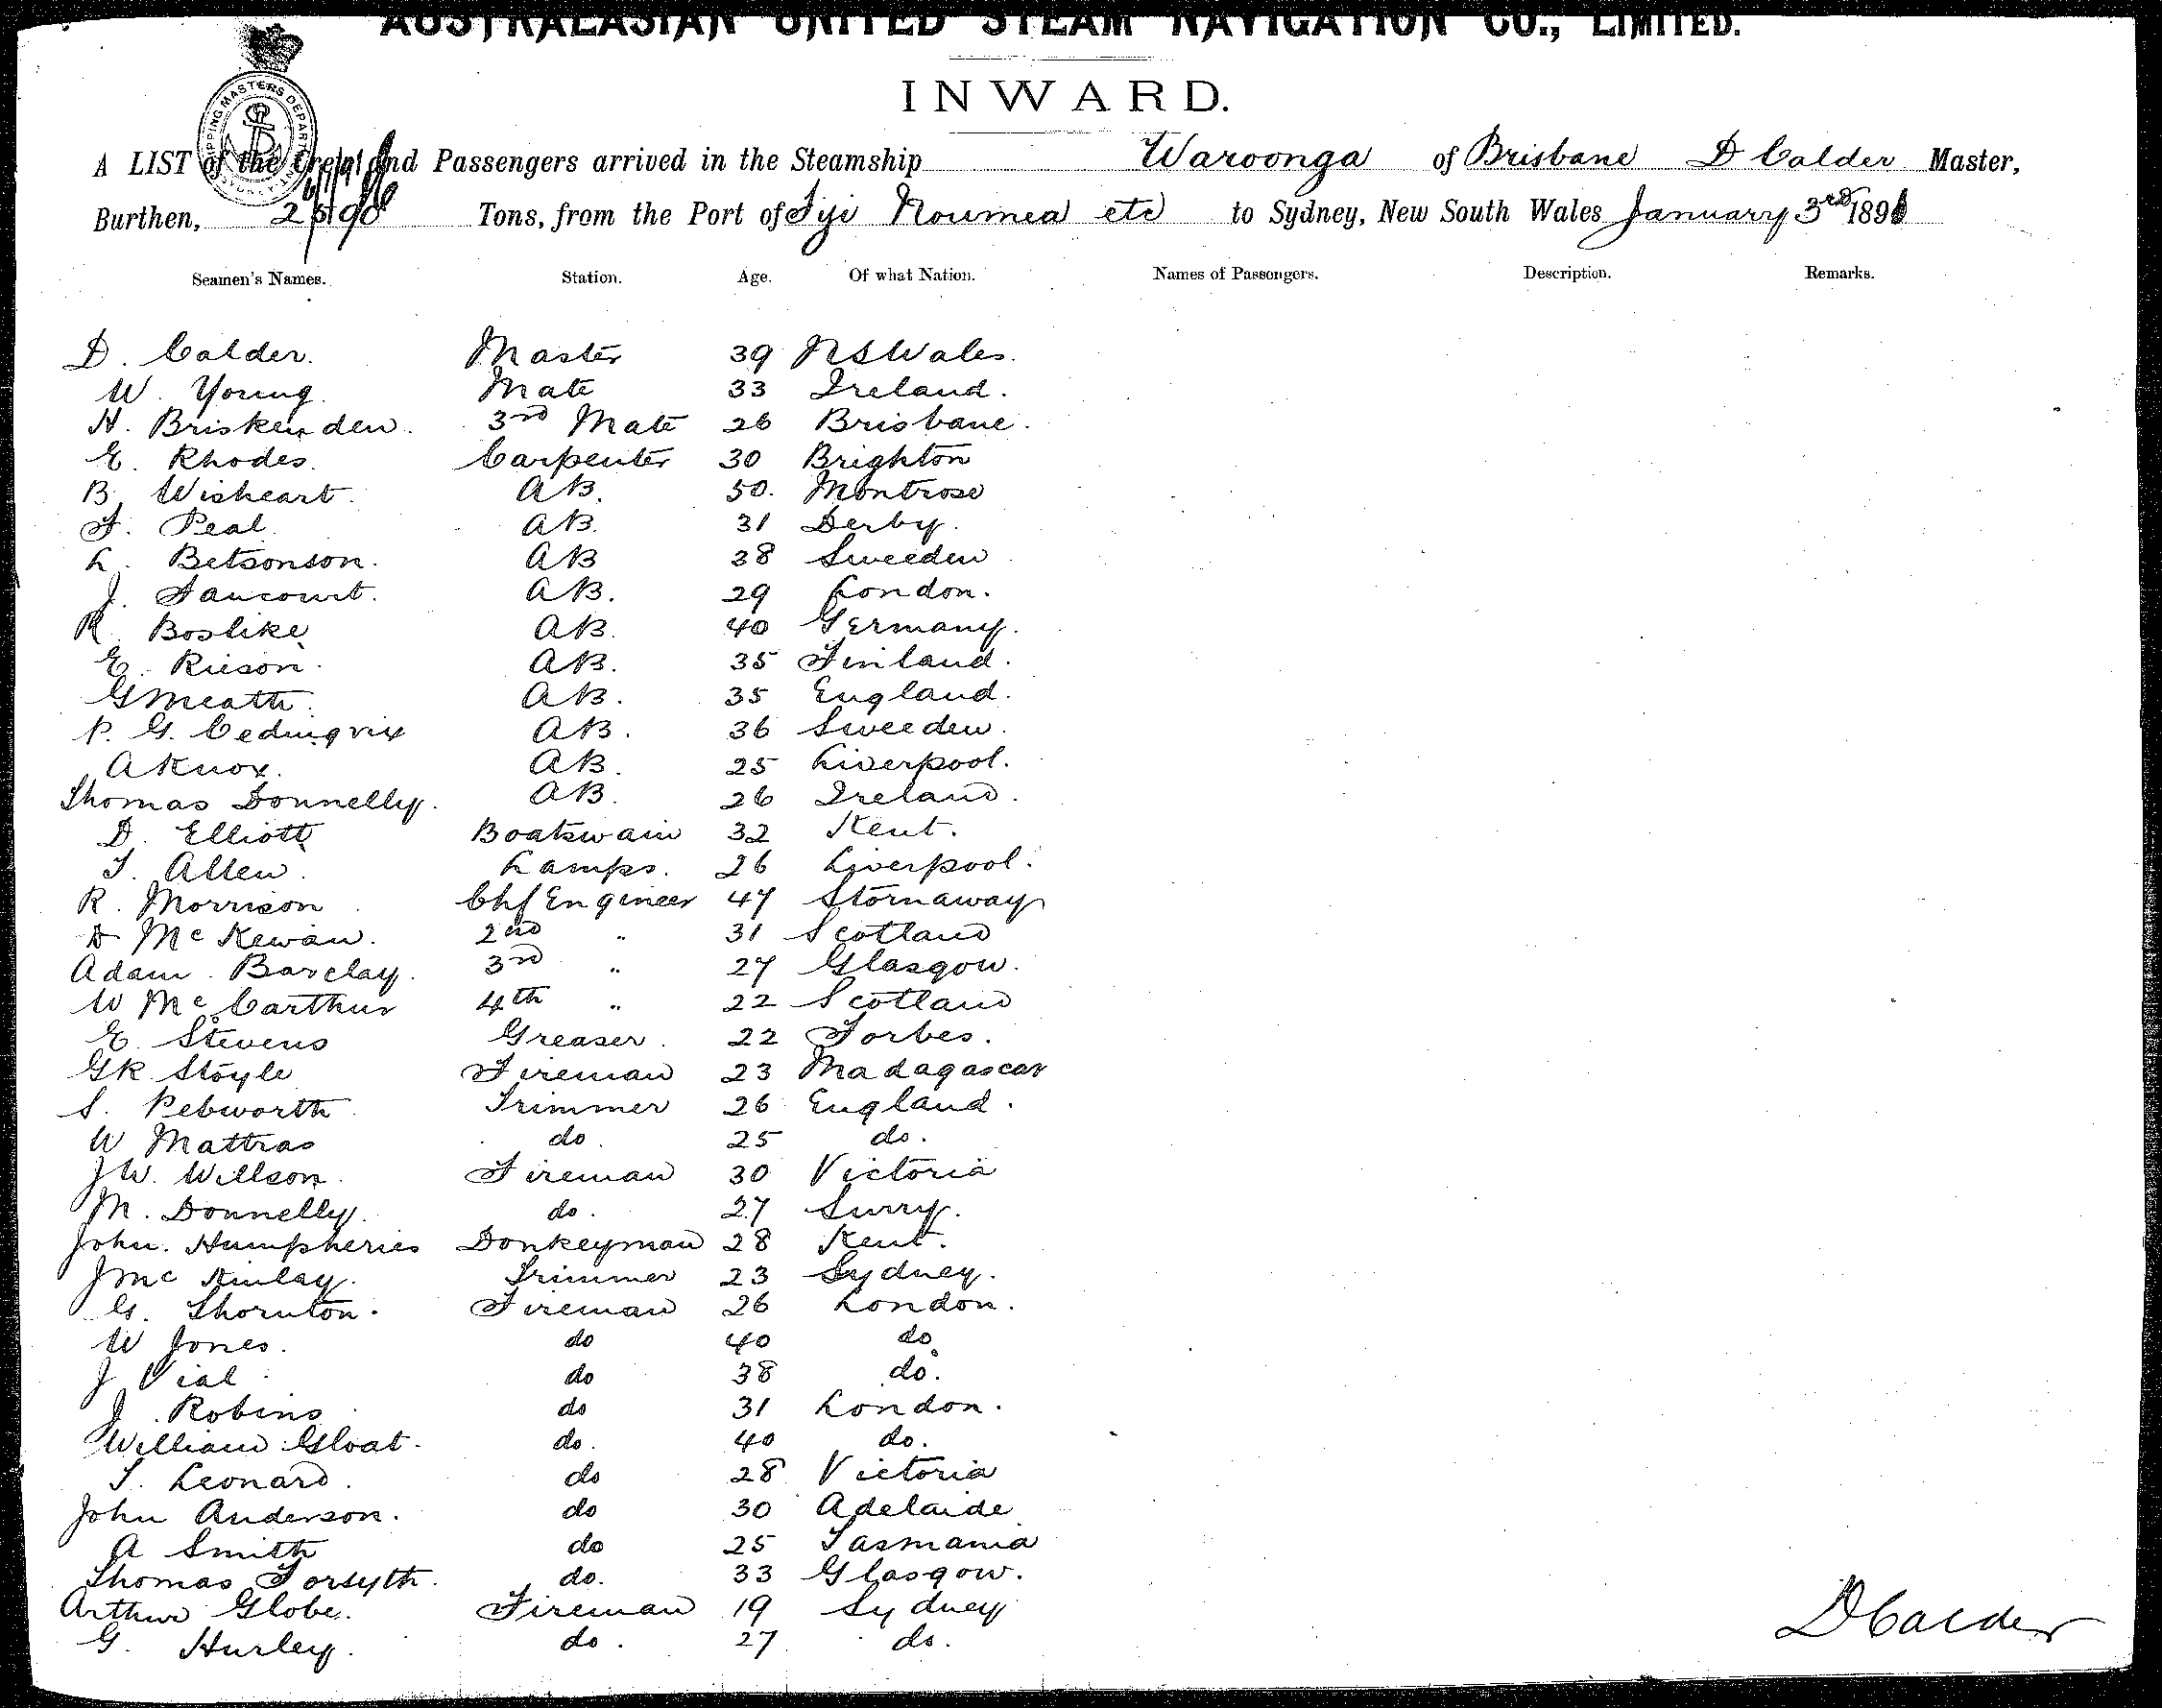 AUSTRALASIAN UNITED STEAM NAVIGATION CO., LIMITED.
INWARD.
SHIPPING MASTERS DEPARTMENT SYDNEY
A LIST of the Crew and Passengers arrived in the Steamship Waroonga of Brisbane D Calder Master,
Burthen, Tons, from the Port of Fiji Noumea etc to Sydney, New South Wales January 3rd 1891
Seamen's Names. Station. Age. Of what Nation. Names of Passengers. Description. Remarks.
D. Calder. Master 39 NSWales.
W. Young. Mate 33 Ireland.
H. Briskenden. 3rd Mate 26 Brisbane.
E. Rhodes. Carpenter 30 Brighton
B. Wisheart. AB. 50. Montrose
F. Peal. AB. 31 Derby.
L. Betsonson. AB 38 Sweeden
J. Fancourt. AB. 29 London.
R. Boslike AB. 40 Germany.
E. Rieson. AB. 35 Finland.
G Meath. AB. 35 England.
P. G. Cedingvix AB. 36 Sweeden.
A Knox. AB. 25 Liverpool.
Thomas Donnelly. AB. 26 Ireland.
D. Elliott Boatswain 32 Kent.
T. Allen. Lamps. 26 Liverpool.
R. Morrison Chf Engineer 47 Stornaway
D McKewan. 2nd " 31 Scotland
Adam. Barclay. 3rd " 27 Glasgow.
W McCarthur 4th " 22 Scotland
E. Stevens Greaser. 22 Forbes.
GR Stoyle Fireman 23 Madagascar
S. Pebworth Trimmer 26 England.
W Mattras do. 25 do.
JW. Willson. Fireman 30 Victoria
M. Donnelly. do. 27 Surry.
John. Humpheries Donkeyman 28 Kent.
J Mc Kinlay. Trimmer 23 Sydney.
G. Thornton. Fireman 26 London.
W Jones. do 40 do
J Vial do 38 do.
J. Robins do 31 London.
William Gloat. do. 40 do.
T. Leonard. do 28 Victoria
John Anderson. do 30 Adelaide
A Smith do 25 Tasmania
Thomas Forsyth. do. 33 Glasgow.
Arthur Globe. Fireman 19 Sydney
G. Hurley. do. 27 do.
D Calder